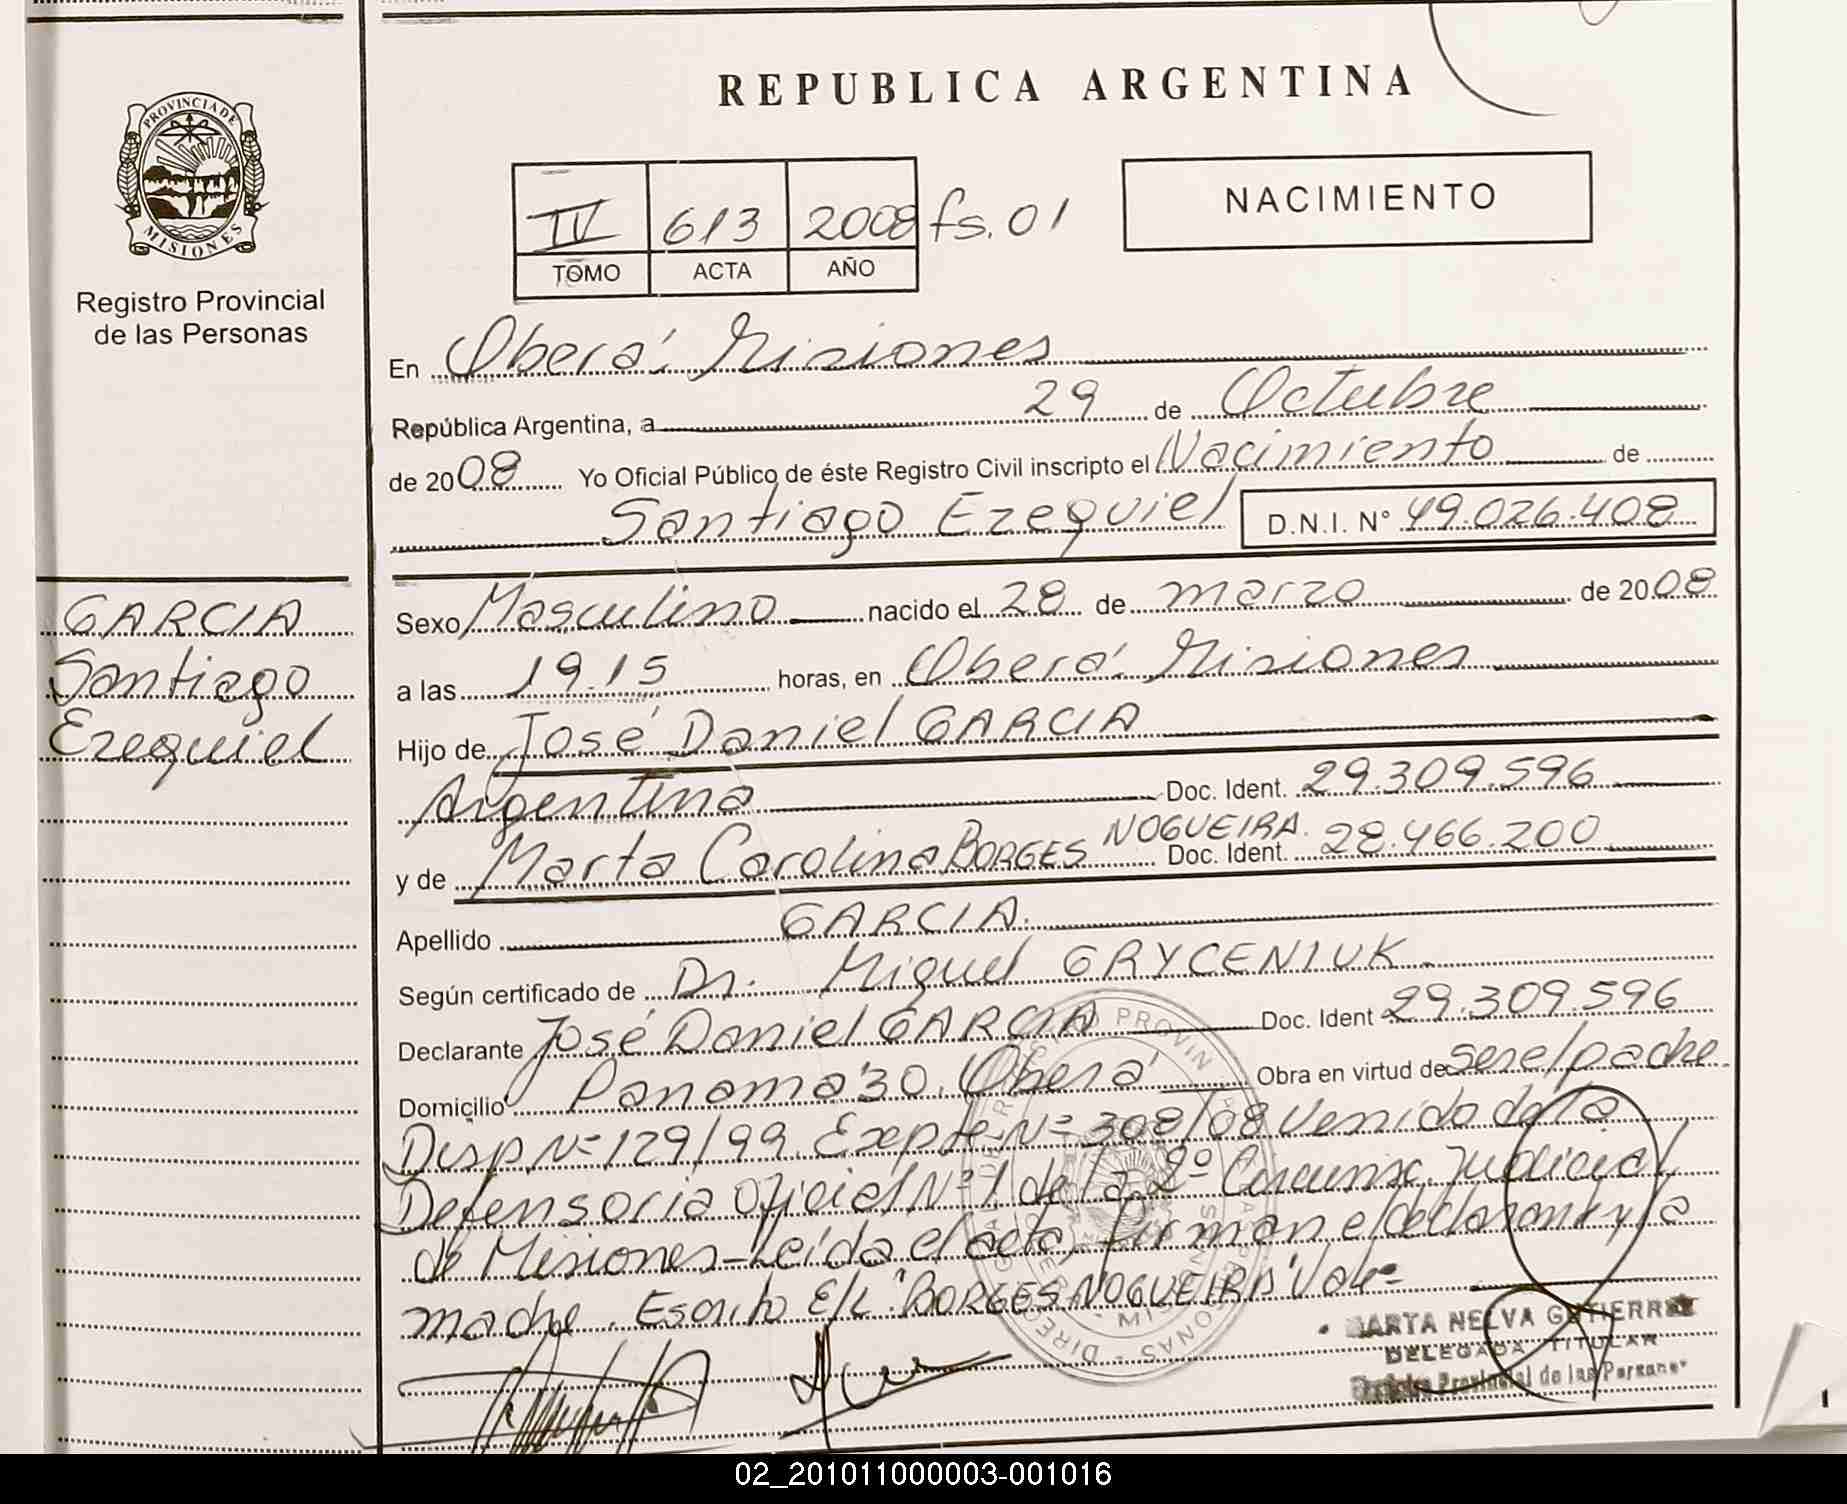 REPUBLICA ARGENTINA
PROVINCIA DE
MISIONES
Registro Provincial
de las Personas
NACIMIENTO
IV 613 2008 fs. 01
TOMO ACTA AÑO
En Oberá. Misiones
República Argentina, a 29 de Octubre
de 2008 Yo Oficial Público de éste Registro Civil inscripto el Nacimiento de
Santiago Ezequiel D.N.I. N° 49.026.408
GARCIA
Santiago
Ezequiel
Sexo Masculino nacido el 28 de marzo de 2008
a las 19.15 horas, en Oberá. Misiones
Hijo de José Daniel GARCIA
Argentina Doc. Ident. 29.309.596
y de Marta Carolina BORGES NOGUEIRA. Doc. Ident. 28.466.200
Apellido GARCIA.
Según certificado de Dr. Miguel GRYCENIUK.
Declarante José Daniel GARCIA Doc. Ident 29.309.596
Domicilio Panamá 30. Oberá Obra en virtud de ser el padre
Disp Nº 129/99. Expte Nº 308/08 Venido de la
Defensoria Oficial Nº 1 de la 2º Circunsc. Judicial
de Misiones - Leída el acta, firman el declarante y la
madre. Escrito E/L "BORGES NOGUEIRA" Vale=
MARTA NELVA GUTIERREZ
DELEGADA TITULAR
Registro Provincial de las Personas
02_201011000003-001016